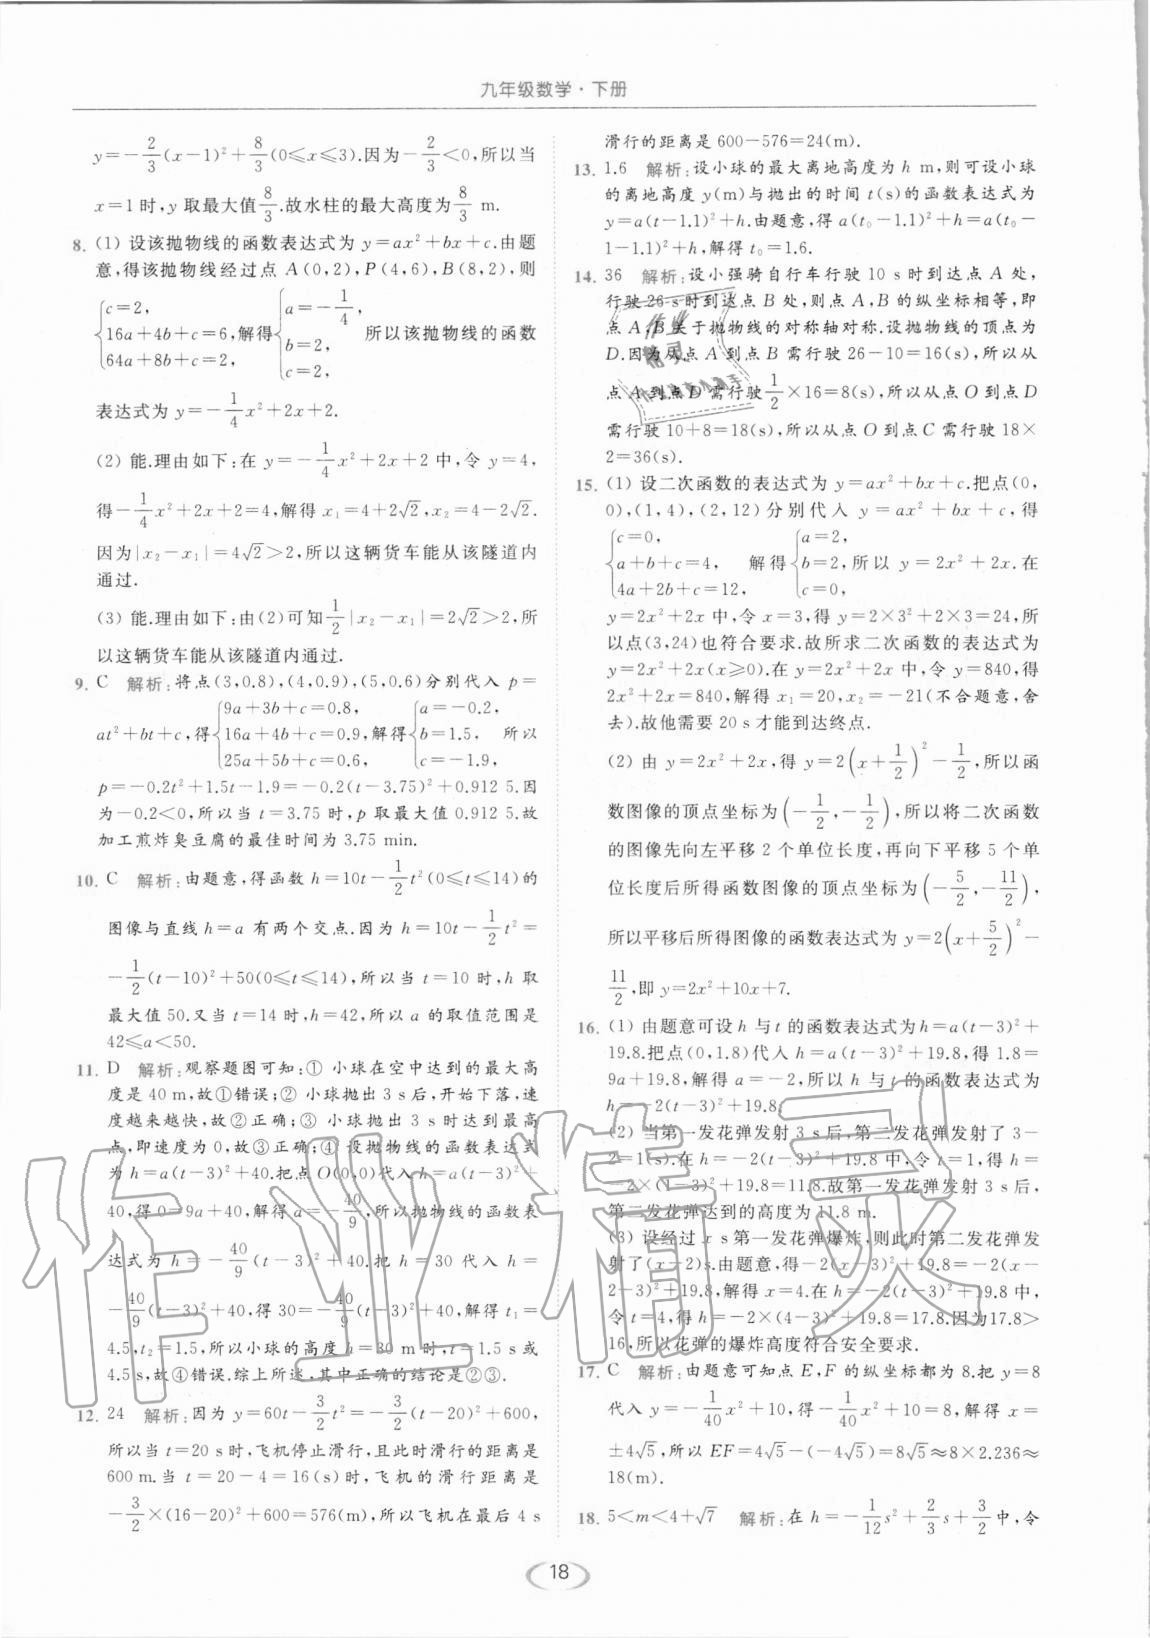 九年级数学·下册
y=-2/3(x-1)²+8/3(0⩽x⩽3).因为-2/3<0,所以当
x=1时,y取最大值8/3.故水柱的最大高度为8/3 m.
8. (1) 设该抛物线的函数表达式为 y=ax²+bx+c.由题
意,得该抛物线经过点 A(0,2),P(4,6),B(8,2),则
{c=2, 16a+4b+c=6, 64a+8b+c=2, 解得{a=-1/4, b=2, c=2, 所以该抛物线的函数
表达式为 y=-1/4x²+2x+2.
(2) 能.理由如下:在 y=-1/4x²+2x+2 中,令 y=4,
得-1/4x²+2x+2=4,解得 x₁=4+2√2,x₂=4-2√2.
因为|x₂-x₁|=4√2>2,所以这辆货车能从该隧道内
通过.
(3) 能.理由如下:由(2)可知1/2|x₂-x₁|=2√2>2,所
以这辆货车能从该隧道内通过.
9. C 解析:将点(3,0.8),(4,0.9),(5,0.6)分别代入 p=
at²+bt+c,得{9a+3b+c=0.8, 16a+4b+c=0.9, 25a+5b+c=0.6, 解得{a=-0.2, b=1.5, c=-1.9, 所以
p=-0.2t²+1.5t-1.9=-0.2(t-3.75)²+0.912 5.因
为-0.2<0,所以当 t=3.75 时,p 取最大值 0.912 5.故
加工煎炸臭豆腐的最佳时间为 3.75 min.
10. C 解析:由题意,得函数 h=10t-1/2t²(0⩽t⩽14)的
图像与直线 h=a 有两个交点.因为 h=10t-1/2t²=
-1/2(t-10)²+50(0⩽t⩽14),所以当 t=10 时,h 取
最大值 50.又当 t=14 时,h=42,所以 a 的取值范围是
42⩽a<50.
11. D 解析:观察题图可知:① 小球在空中达到的最大高
度是 40 m,故①错误;② 小球抛出 3 s 后,开始下落,速
度越来越快,故②正确;③ 小球抛出 3 s 时达到最高
点,即速度为 0,故③正确;④ 设抛物线的函数表达式
为 h=a(t-3)²+40.把点 O(0,0)代入 h=a(t-3)²+
40,得 0=9a+40,解得 a=-40/9,所以抛物线的函数表
达式为 h=-40/9(t-3)²+40.把 h=30 代入 h=
-40/9(t-3)²+40,得 30=-40/9(t-3)²+40,解得 t₁=
4.5,t₂=1.5,所以小球的高度 h=30 m 时,t=1.5 s 或
4.5 s,故④错误.综上所述,其中正确的结论是②③.
12. 24 解析:因为 y=60t-3/2t²=-3/2(t-20)²+600,
所以当 t=20 s 时,飞机停止滑行,且此时滑行的距离是
600 m.当 t=20-4=16(s)时,飞机的滑行距离是
-3/2×(16-20)²+600=576(m),所以飞机在最后 4 s
滑行的距离是 600-576=24(m).
13. 1.6 解析:设小球的最大离地高度为 h m,则可设小球
的离地高度 y(m)与抛出的时间 t(s)的函数表达式为
y=a(t-1.1)²+h.由题意,得 a(t₀-1.1)²+h=a(t₀-
1-1.1)²+h,解得 t₀=1.6.
14. 36 解析:设小强骑自行车行驶 10 s 时到达点 A 处,
行驶 26 s 时到达点 B 处,则点 A,B 的纵坐标相等,即
点 A,B 关于抛物线的对称轴对称.设抛物线的顶点为
D.因为从点 A 到点 B 需行驶 26-10=16(s),所以从
点 A 到点 D 需行驶1/2×16=8(s),所以从点 O 到点 D
需行驶 10+8=18(s),所以从点 O 到点 C 需行驶 18×
2=36(s).
15. (1) 设二次函数的表达式为 y=ax²+bx+c.把点(0,
0),(1,4),(2,12)分别代入 y=ax²+bx+c,得
{c=0, a+b+c=4, 4a+2b+c=12, 解得{a=2, b=2, c=0, 所以 y=2x²+2x.在
y=2x²+2x 中,令 x=3,得 y=2×3²+2×3=24,所
以点(3,24)也符合要求.故所求二次函数的表达式为
y=2x²+2x(x⩾0).在 y=2x²+2x 中,令 y=840,得
2x²+2x=840,解得 x₁=20,x₂=-21(不合题意,舍
去).故他需要 20 s 才能到达终点.
(2) 由 y=2x²+2x,得 y=2(x+1/2)²-1/2,所以函
数图像的顶点坐标为(-1/2,-1/2),所以将二次函数
的图像先向左平移 2 个单位长度,再向下平移 5 个单
位长度后所得函数图像的顶点坐标为(-5/2,-11/2),
所以平移后所得图像的函数表达式为 y=2(x+5/2)²-
11/2,即 y=2x²+10x+7.
16. (1) 由题意可设 h 与 t 的函数表达式为 h=a(t-3)²+
19.8.把点(0,1.8)代入 h=a(t-3)²+19.8,得 1.8=
9a+19.8,解得 a=-2,所以 h 与 t 的函数表达式为
h=-2(t-3)²+19.8.
(2) 当第一发花弹发射 3 s 后,第二发花弹发射了 3-
2=1(s).在 h=-2(t-3)²+19.8 中,令 t=1,得 h=
-2×(1-3)²+19.8=11.8.故第一发花弹发射 3 s 后,
第二发花弹达到的高度为 11.8 m.
(3) 设经过 x s 第一发花弹爆炸,则此时第二发花弹发
射了(x-2)s.由题意,得-2(x-3)²+19.8=-2(x-
2-3)²+19.8,解得 x=4.在 h=-2(t-3)²+19.8 中,
令 t=4,得 h=-2×(4-3)²+19.8=17.8.因为17.8>
16,所以花弹的爆炸高度符合安全要求.
17. C 解析:由题意可知点 E,F 的纵坐标都为 8.把 y=8
代入 y=-1/40x²+10,得-1/40x²+10=8,解得 x=
±4√5,所以 EF=4√5-(-4√5)=8√5≈8×2.236≈
18(m).
18. 5<m<4+√7 解析:在 h=-1/12s²+2/3s+3/2中,令
18
作业精灵
作业
精灵